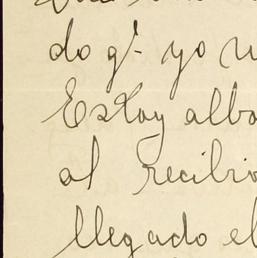 do q.e yo
Estoy albo
al recibi
llegado el